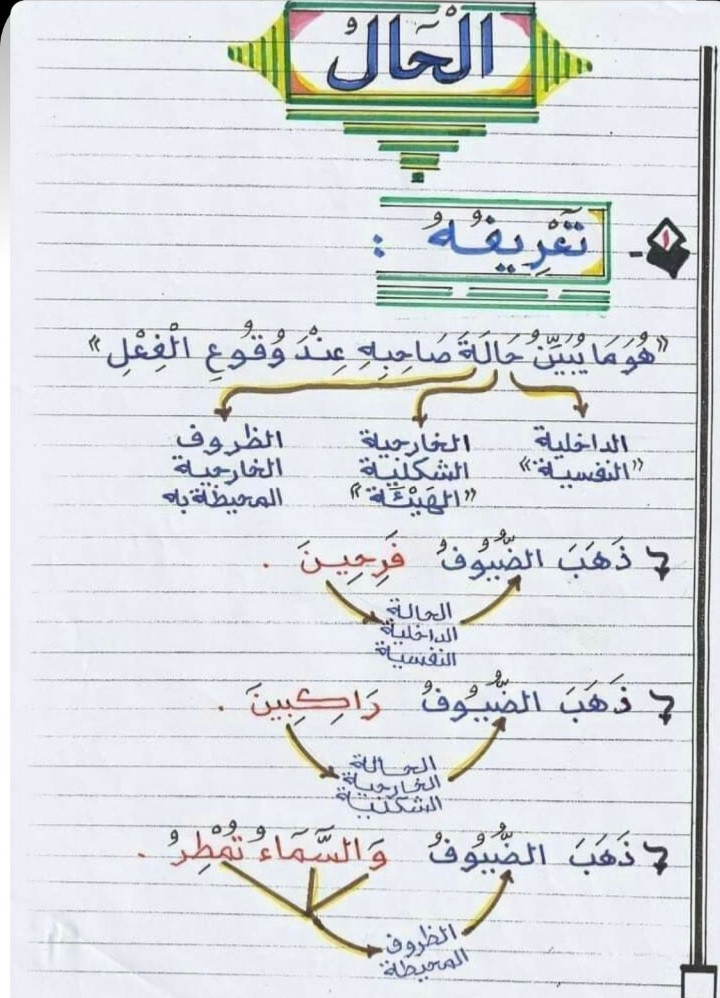 الْحَالُ
١ - تَعْرِيفُهُ :
"هُوَ مَا يُبَيِّنُ حَالَةَ صَاحِبِهِ عِنْدَ وُقُوعِ الْفِعْلِ"
الداخلية
"النفسية"
الخارجية
الشكلية
"الهَيْئَة"
الظروف
الخارجية
المحيطة به
ذَهَبَ الضُّيُوفُ فَرِحِينَ .
الحالة
الداخلية
النفسية
ذَهَبَ الضُّيُوفُ رَاكِبِينَ .
الحالة
الخارجية
الشكلية
ذَهَبَ الضُّيُوفُ وَالسَّمَاءُ تُمْطِرُ .
الظروف
المحيطة